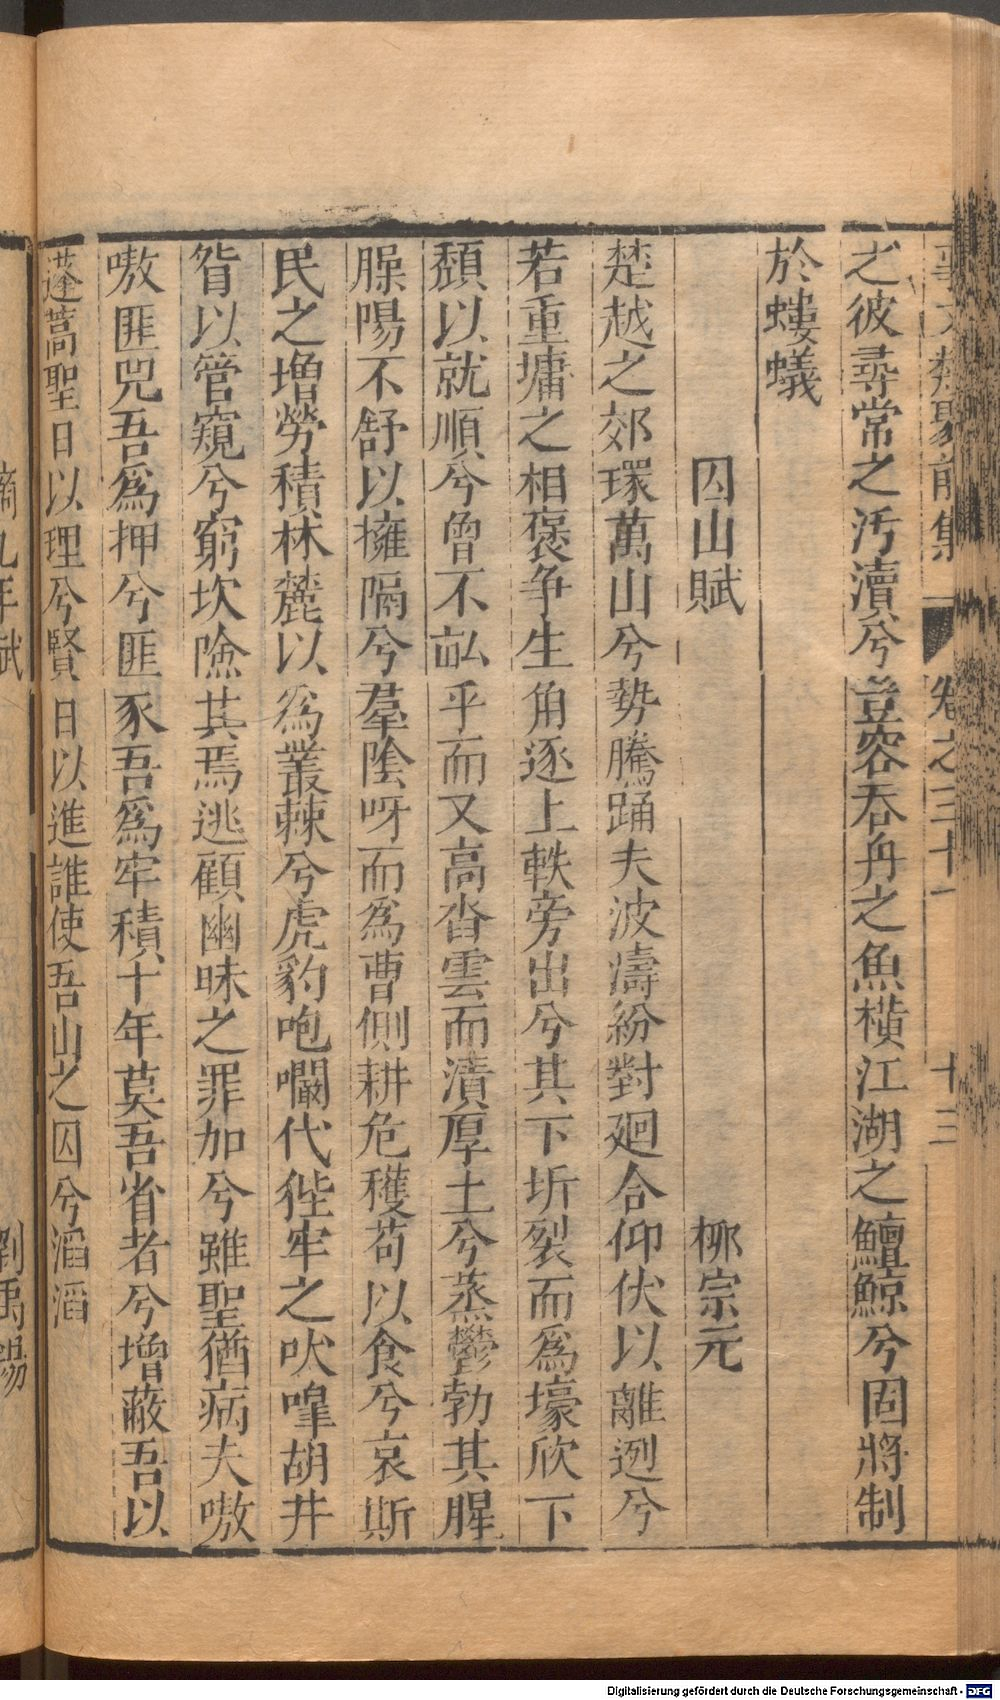 事文類聚前集 卷之三十一 十三
之彼尋常之汚瀆兮豈容吞舟之魚橫江湖之鱣鯨兮固將制
於螻蟻
囚山賦 柳宗元
楚越之郊環萬山兮勢騰踊夫波濤紛對廻合仰伏以離迾兮
若重墉之相褒争生角逐上軼旁出兮其下坼裂而爲壕欣下
頹以就順兮曾不畝乎而又高沓雲而漬厚土兮蒸鬱勃其腥
臊陽不舒以擁隔兮羣陰呀而爲曹側耕危穫苟以食兮哀斯
民之增勞積林麓以爲叢棘兮虎豹咆㘚代狴牢之吠嘷胡井
眢以管窺兮窮坎險其焉逃顧幽昧之罪加兮雖聖猶病夫嗷
嗷匪兕吾爲押兮匪豕吾爲牢積十年莫吾省者兮增蔽吾以
蓬蒿聖日以理兮賢日以進誰使吾山之囚兮滔滔
謫九年賦 劉禹錫
Digitalisierung gefördert durch die Deutsche Forschungsgemeinschaft - DFG